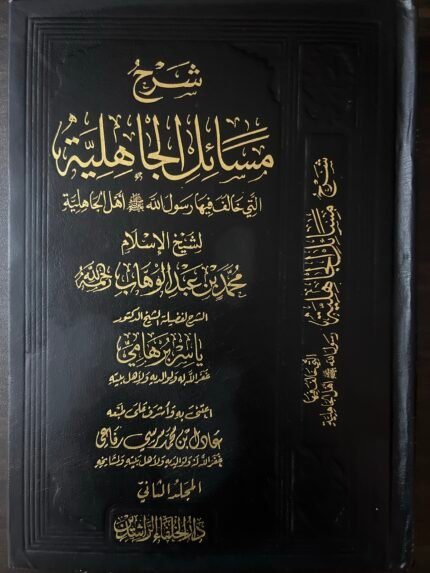 شرح
مسائل الجاهلية
التي خالف فيها رسول الله ﷺ أهل الجاهلية
لشيخ الإسلام
محمد بن عبد الوهاب رحمه الله
الشرح لفضيلة الشيخ الدكتور
ياسر برهامي
غفر الله له ولوالديه ولأهل بيته
اعتنى به وأشرف على طبعه
عادل بن محمد مرسي رفاعي
غفر الله له ولوالديه ولأهل بيته ولمشايخه
المجلد الثاني
دار الخلفاء الراشدين
شرح مسائل الجاهلية
التي خالف فيها
رسول الله ﷺ أهل الجاهلية